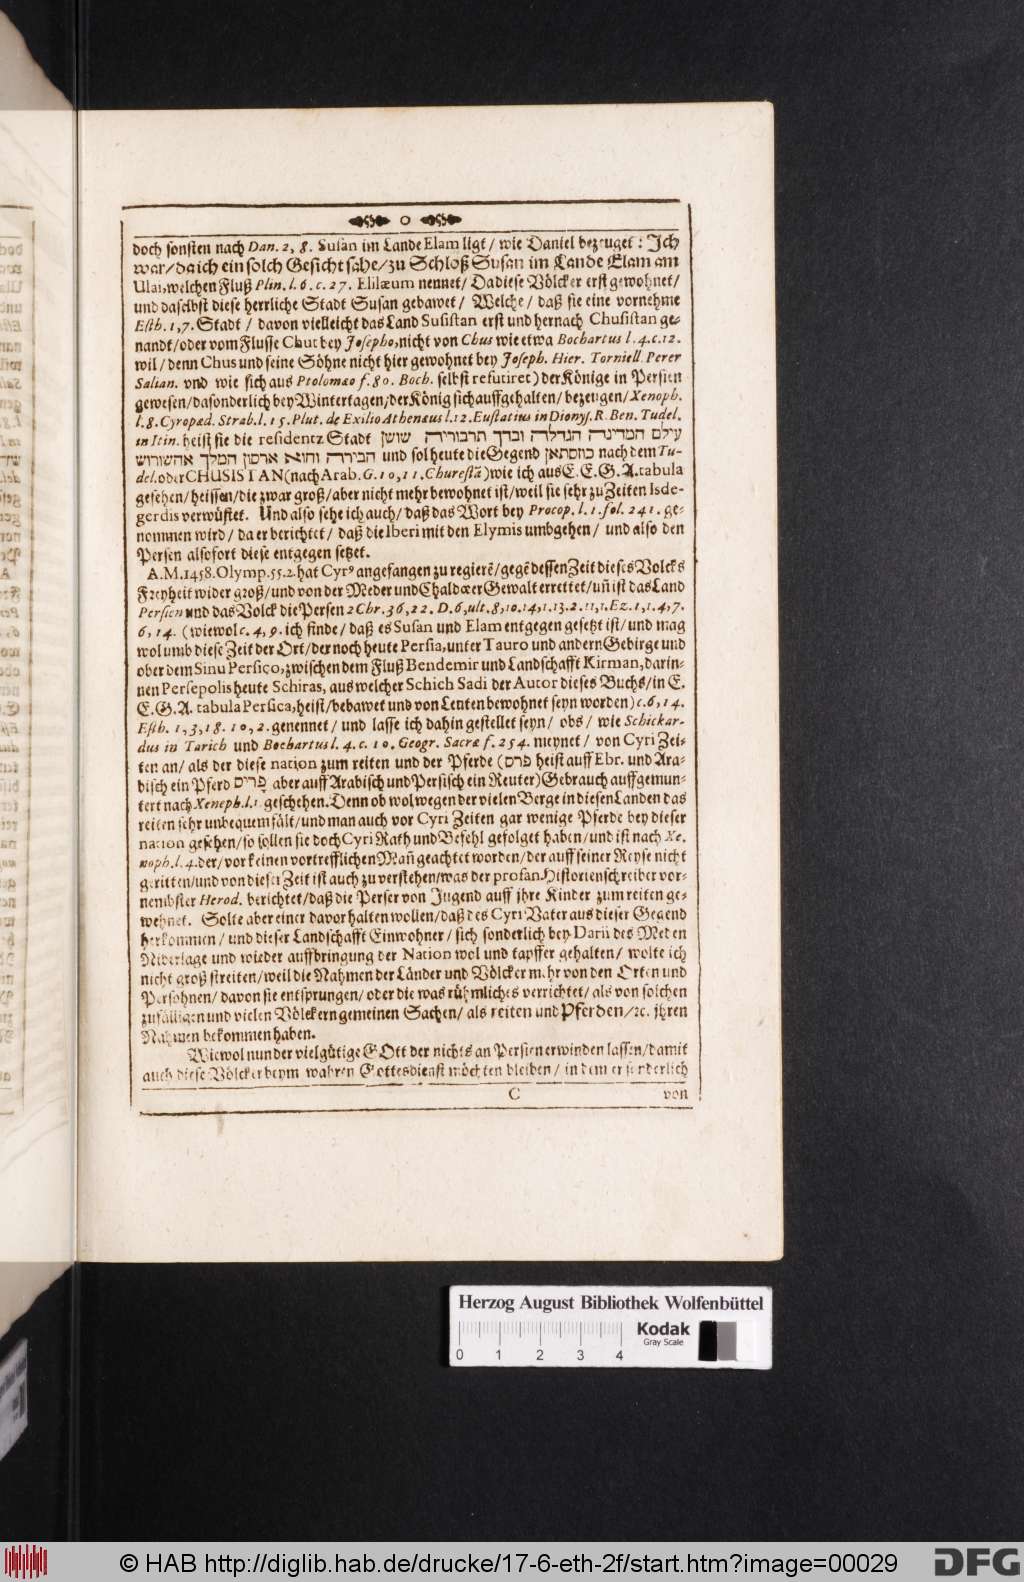 doch sonsten nach Dan. 2, 8. Susan im Lande Elam ligt/ wie Daniel bezeuget: Jch
war/ da ich ein solch Gesicht sahe/ zu Schloß Susan im Lande Elam am
Ulai, welchen Fluß Plin. l. 6. c. 27. Elilæum nennet/ Da diese Völcker erst gewohnet/
und daselbst diese herrliche Stadt Susan gebawet/ Welche/ daß sie eine vornehme
Esth. 1, 7. Stadt/ davon vielleicht das Land Susistan erst und hernach Chusistan ge-
nandt/ oder vom Flusse Chut bey Josepho, nicht von Chus wie etwa Bochartus l. 4. c. 12.
wil/ denn Chus und seine Söhne nicht hier gewohnet bey Joseph. Hier. Torniell. Perer
Salian. vnd wie sich aus Ptolomæo f. 80. Boch. selbst refutiret) der Könige in Persien
gewesen/ da sonderlich bey Wintertagen/ der König sich auffgehalten/ bezeugen/ Xenoph.
l. 8. Cyropæd. Strab. l. 15. Plut. de Exilio Athenæus l. 12. Eustatius in Dionys. R. Ben. Tudel.
in Itin. heist sie die residentz Stadt עילם המדינה הגדלה ובדך תרבורידה שושן
הבירה והוא ארמון המלך אחשורוש und sol heute die Gegend כוזסתאן nach dem Tu-
del. oder CHUSISTAN (nach Arab. G. 10, 11. Churestā) wie ich aus E. E. G. A. tabula
gesehen/ heissen/ die zwar groß/ aber nicht mehr bewohnet ist/ weil sie sehr zu Zeiten Isde-
gerdis verwüstet. Und also sehe ich auch/ daß das Wort bey Procop. l. 1. fol. 241. ge-
nommen wird/ da er berichtet/ daß die Iberi mit den Elymis umbgehen/ und also den
Persen alsofort diese entgegen setzet.
A. M. 1458. Olymp. 55. 2. hat Cyrꝰ angefangen zu regierē/ gegē dessen Zeit dieses Volcks
Freyheit wider groß/ und von der Meder und Chaldæer Gewalt errettet/ uñ ist das Land
Persien und das Volck die Persen 2 Chr. 36, 22. D. 6, ult. 8, 10. 14, 1. 13. 2. 11, 1. Ez. 1, 1. 4, 7.
6, 14. (wiewol c. 4, 9. ich finde/ daß es Susan und Elam entgegen gesetzt ist/ und mag
wol umb diese Zeit der Ort/ der noch heute Persia, unter Tauro und andern Gebirge und
ober dem Sinu Persico, zwischen dem Fluß Bendemir und Landschafft Kirman, darin-
nen Persepolis heute Schiras, aus welcher Schich Sadi der Autor dieses Buchs/ in E.
E. G. A. tabula Persica, heist/ bebawet und von Leuten bewohnet seyn worden) c. 6, 14.
Esth. 1, 3, 18. 10, 2. genennet/ und lasse ich dahin gestellet seyn/ obs/ wie Schickar-
dus in Tarich und Bochartus l. 4. c. 10. Geogr. Sacræ f. 254. meynet/ von Cyri Zei-
ten an/ als der diese nation zum reiten und der Pferde (פרס heist auff Ebr. und Ara-
bisch ein Pferd פריס aber auff Arabisch und Persisch ein Reuter) Gebrauch auffgemun-
tert nach Xenoph. l. 1. geschehen. Denn ob wol wegen der vielen Berge in diesen Landen das
reiten sehr unbequem fält/ und man auch vor Cyri Zeiten gar wenige Pferde bey dieser
nation gesehen/ so sollen sie doch Cyri Rath und Befehl gefolget haben/ und ist nach Xe-
noph. l. 4. der/ vor keinen vortrefflichen Mañ geachtet worden/ der auff seiner Reyse nicht
geritten/ und von dieser Zeit ist auch zu verstehen/ was der profan Historienschreiber vor-
nembster Herod. berichtet/ daß die Perser von Jugend auff jhre Kinder zum reiten ge-
wehnet. Solte aber einer davor halten wollen/ daß des Cyri Vater aus dieser Gegend
herkommen/ und dieser Landschafft Einwohner/ sich sonderlich bey Darii des Meden
Niderlage und wieder auffbringung der Nation wol und tapffer gehalten/ wolte ich
nicht groß streiten/ weil die Nahmen der Länder und Völcker mehr von den Orten und
Persohnen/ davon sie entsprungen/ oder die was rühmliches verrichtet/ als von solchen
zufälligen und vielen Völckern gemeinen Sachen/ als reiten und Pferden/ ꝛc. jhren
Nahmen bekommen haben.
Wiewol nun der vielgütige GOtt der nichts an Persien erwinden lassen/ damit
auch diese Völcker beym wahren Gottesdienst möchten bleiben/ in dem er sonderlich
C von
Herzog August Bibliothek Wolfenbüttel
Kodak
Gray Scale
0 1 2 3 4
© HAB http://diglib.hab.de/drucke/17-6-eth-2f/start.htm?image=00029
DFG